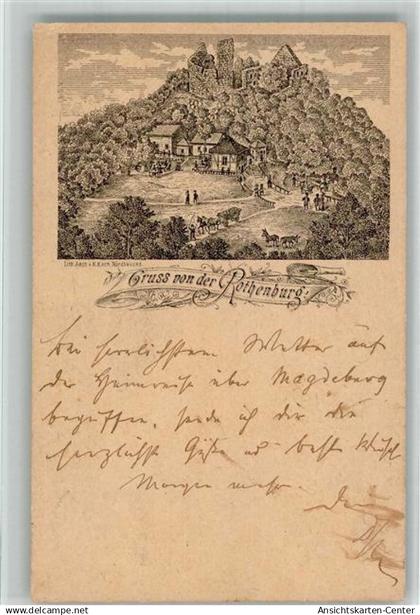 Lith. Anst. v. K. Koch, Nordhausen.
Gruss von der Rothenburg.
Bei herrlichstem Wetter auf
der Heimreise über Magdeburg
begriffen, sende ich dir die
herzlichste Grüße und beste Wünsche
Morgen mehr.
Dein
www.delcampe.net
Ansichtskarten-Center